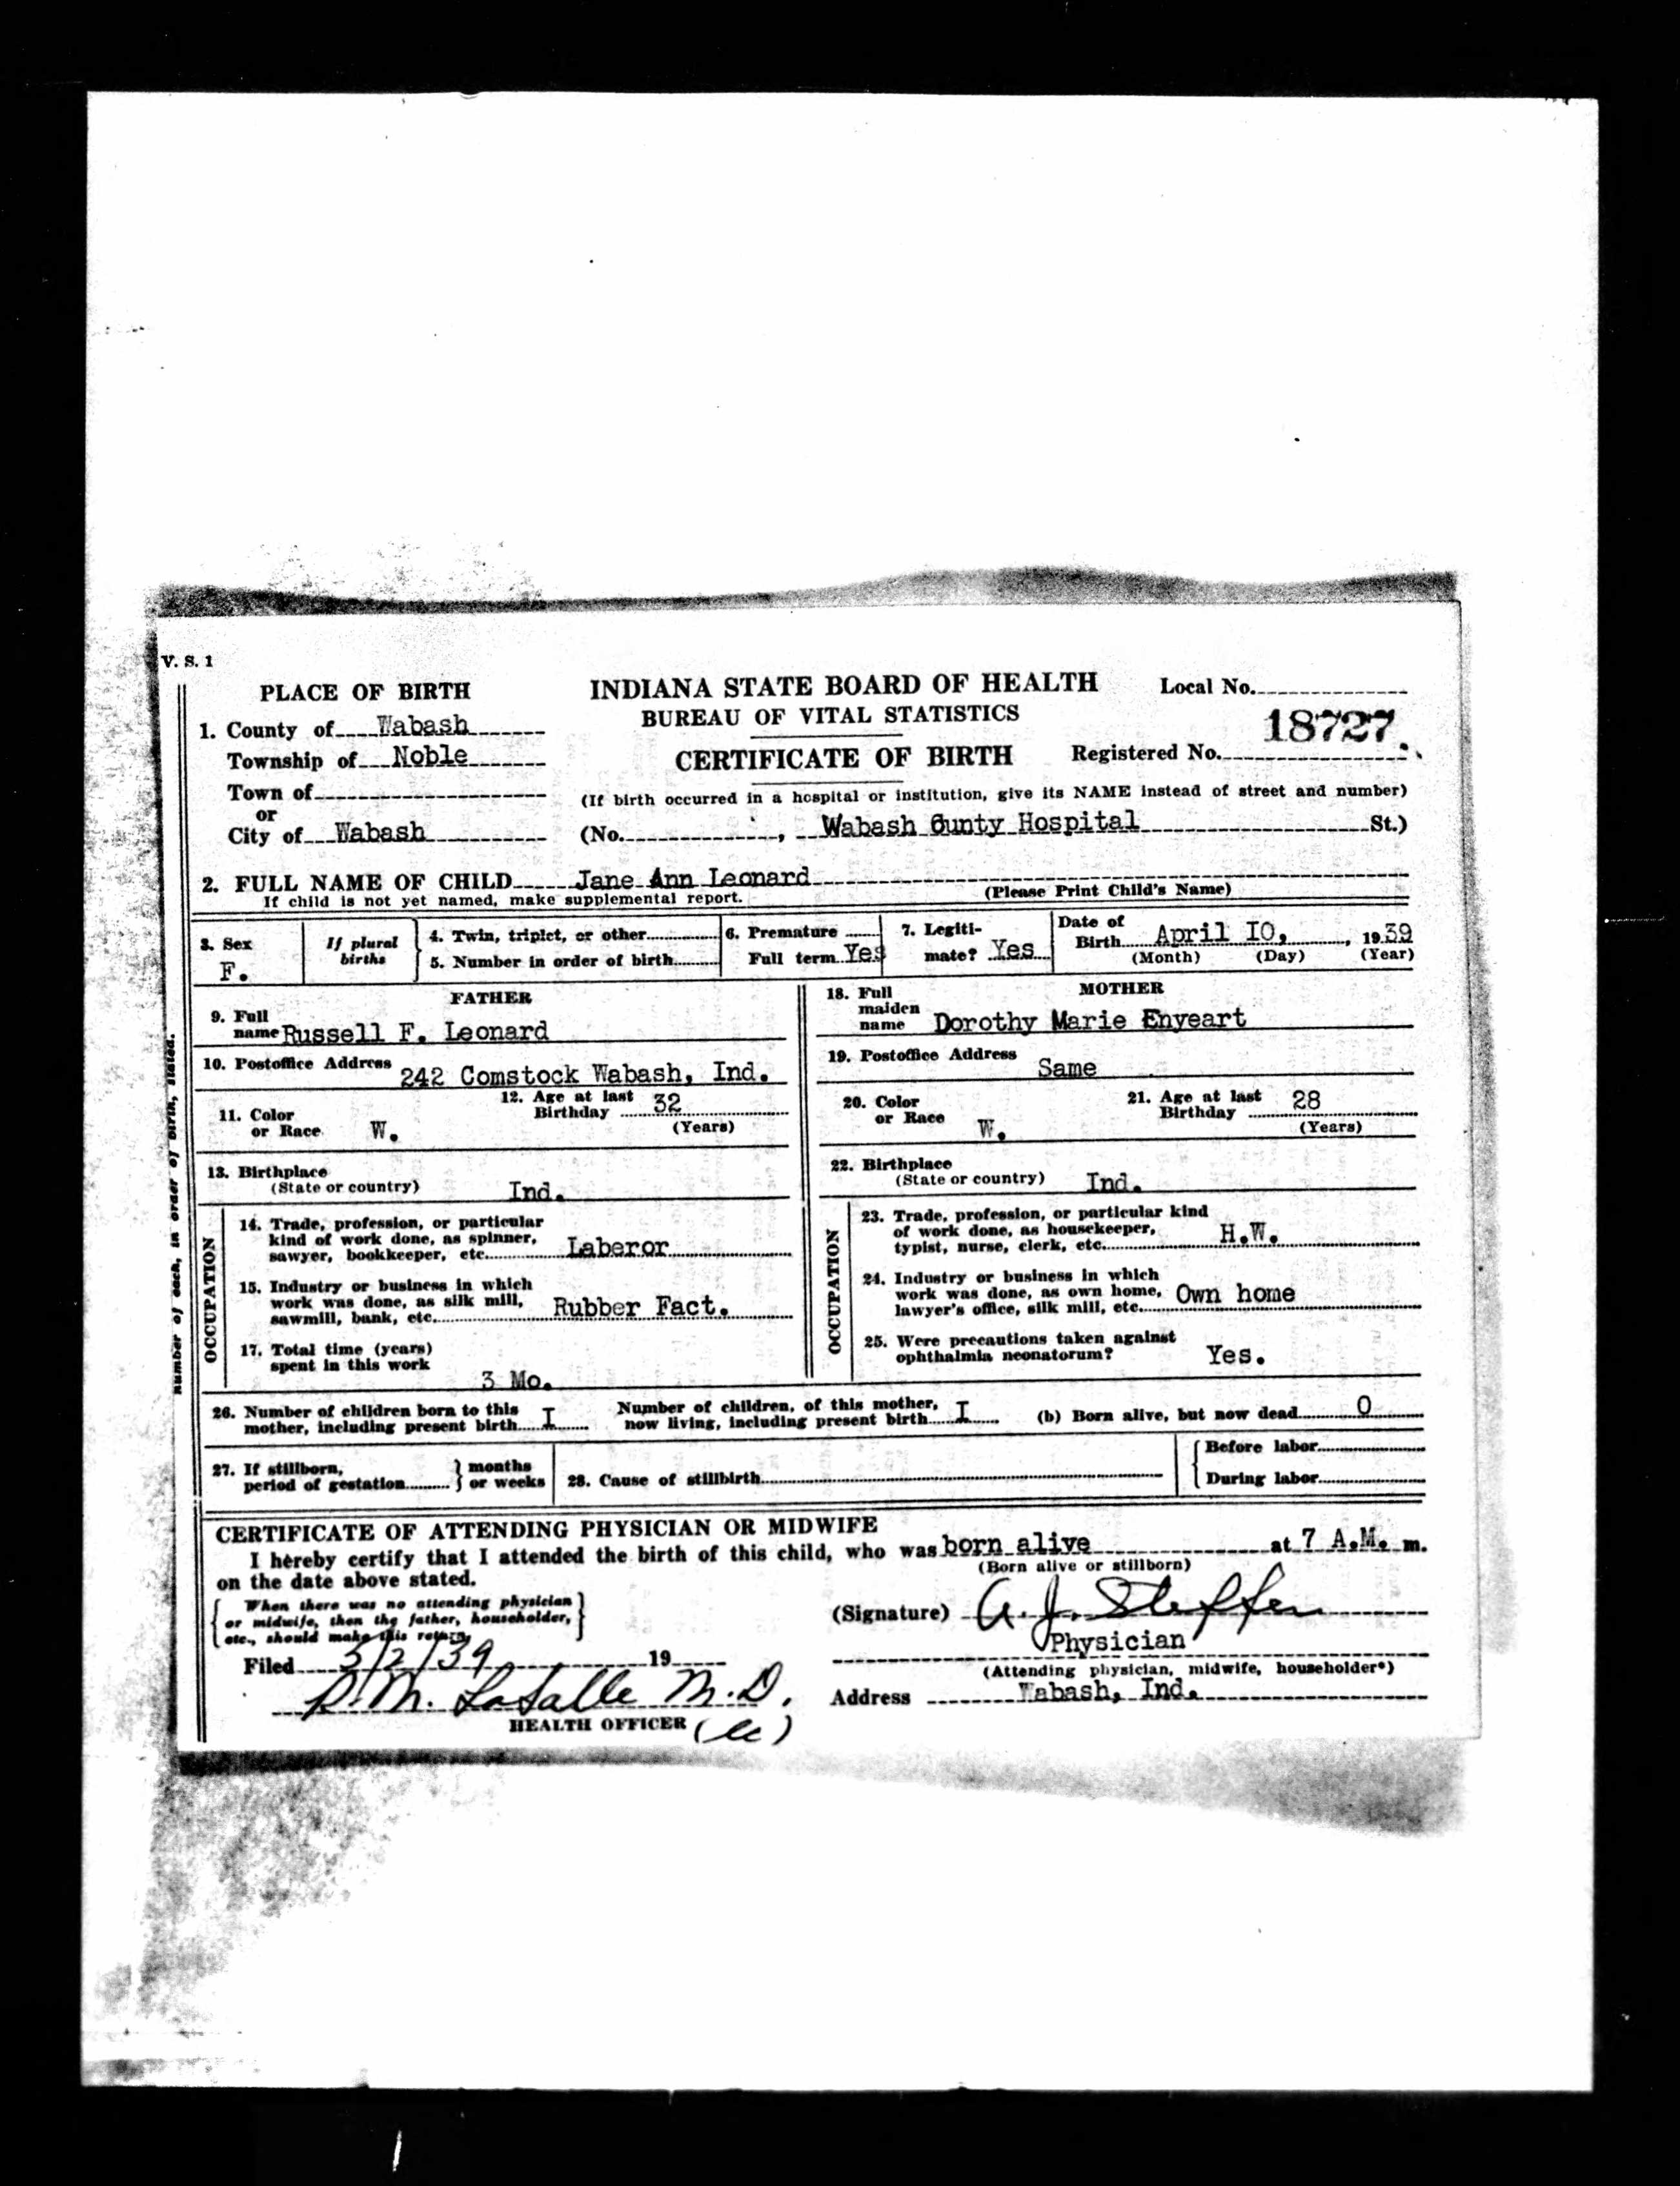 V. S. 1
PLACE OF BIRTH
1. County of Wabash
Township of Noble
Town of
or
City of Wabash
INDIANA STATE BOARD OF HEALTH
BUREAU OF VITAL STATISTICS
CERTIFICATE OF BIRTH
Local No.
18727
Registered No.
(If birth occurred in a hospital or institution, give its NAME instead of street and number)
(No. , Wabash Gunty Hospital St.)
2. FULL NAME OF CHILD Jane Ann Leonard
If child is not yet named, make supplemental report.
(Please Print Child's Name)
3. Sex
F.
If plural
births
4. Twin, triplet, or other
5. Number in order of birth
6. Premature
Full term Yes
7. Legiti-
mate? Yes
Date of
Birth April I0, , 1939
(Month) (Day) (Year)
FATHER
9. Full
name Russell F. Leonard
10. Postoffice Address 242 Comstock Wabash, Ind.
11. Color
or Race W.
12. Age at last
Birthday 32
(Years)
13. Birthplace
(State or country) Ind.
OCCUPATION
14. Trade, profession, or particular
kind of work done, as spinner,
sawyer, bookkeeper, etc. Laberor
15. Industry or business in which
work was done, as silk mill,
sawmill, bank, etc. Rubber Fact.
17. Total time (years)
spent in this work
3 Mo.
MOTHER
18. Full
maiden
name Dorothy Marie Enyeart
19. Postoffice Address Same
20. Color
or Race W.
21. Age at last
Birthday 28
(Years)
22. Birthplace
(State or country) Ind.
OCCUPATION
23. Trade, profession, or particular kind
of work done, as housekeeper,
typist, nurse, clerk, etc. H.W.
24. Industry or business in which
work was done, as own home,
lawyer's office, silk mill, etc. Own home
25. Were precautions taken against
ophthalmia neonatorum? Yes.
26. Number of children born to this
mother, including present birth I
Number of children, of this mother,
now living, including present birth I
(b) Born alive, but now dead 0
27. If stillborn,
period of gestation } months
or weeks
28. Cause of stillbirth
Before labor
During labor
CERTIFICATE OF ATTENDING PHYSICIAN OR MIDWIFE
I hereby certify that I attended the birth of this child, who was born alive at 7 A.M. m.
(Born alive or stillborn)
on the date above stated.
When there was no attending physician
or midwife, then the father, householder,
etc., should make this return.
(Signature) A. J. Steffen
Physician
(Attending physician, midwife, householder*)
Address Wabash, Ind.
Filed 5/2/39 19
R.M. LaSalle M.D.
HEALTH OFFICER
number of each, in order of birth, stated.